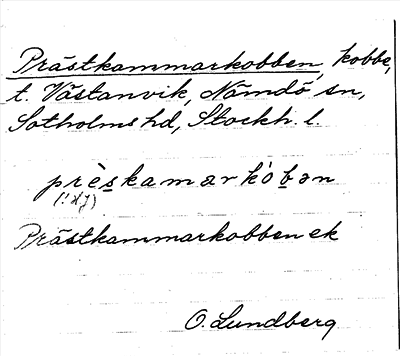 Prästkammarkobben, kobbe,
t. Västanvik, Nämdö sn,
Sotholms hd, Stockh. l.
prèskamarkóbən
Prästkammarkobben ek
O. Lundberg